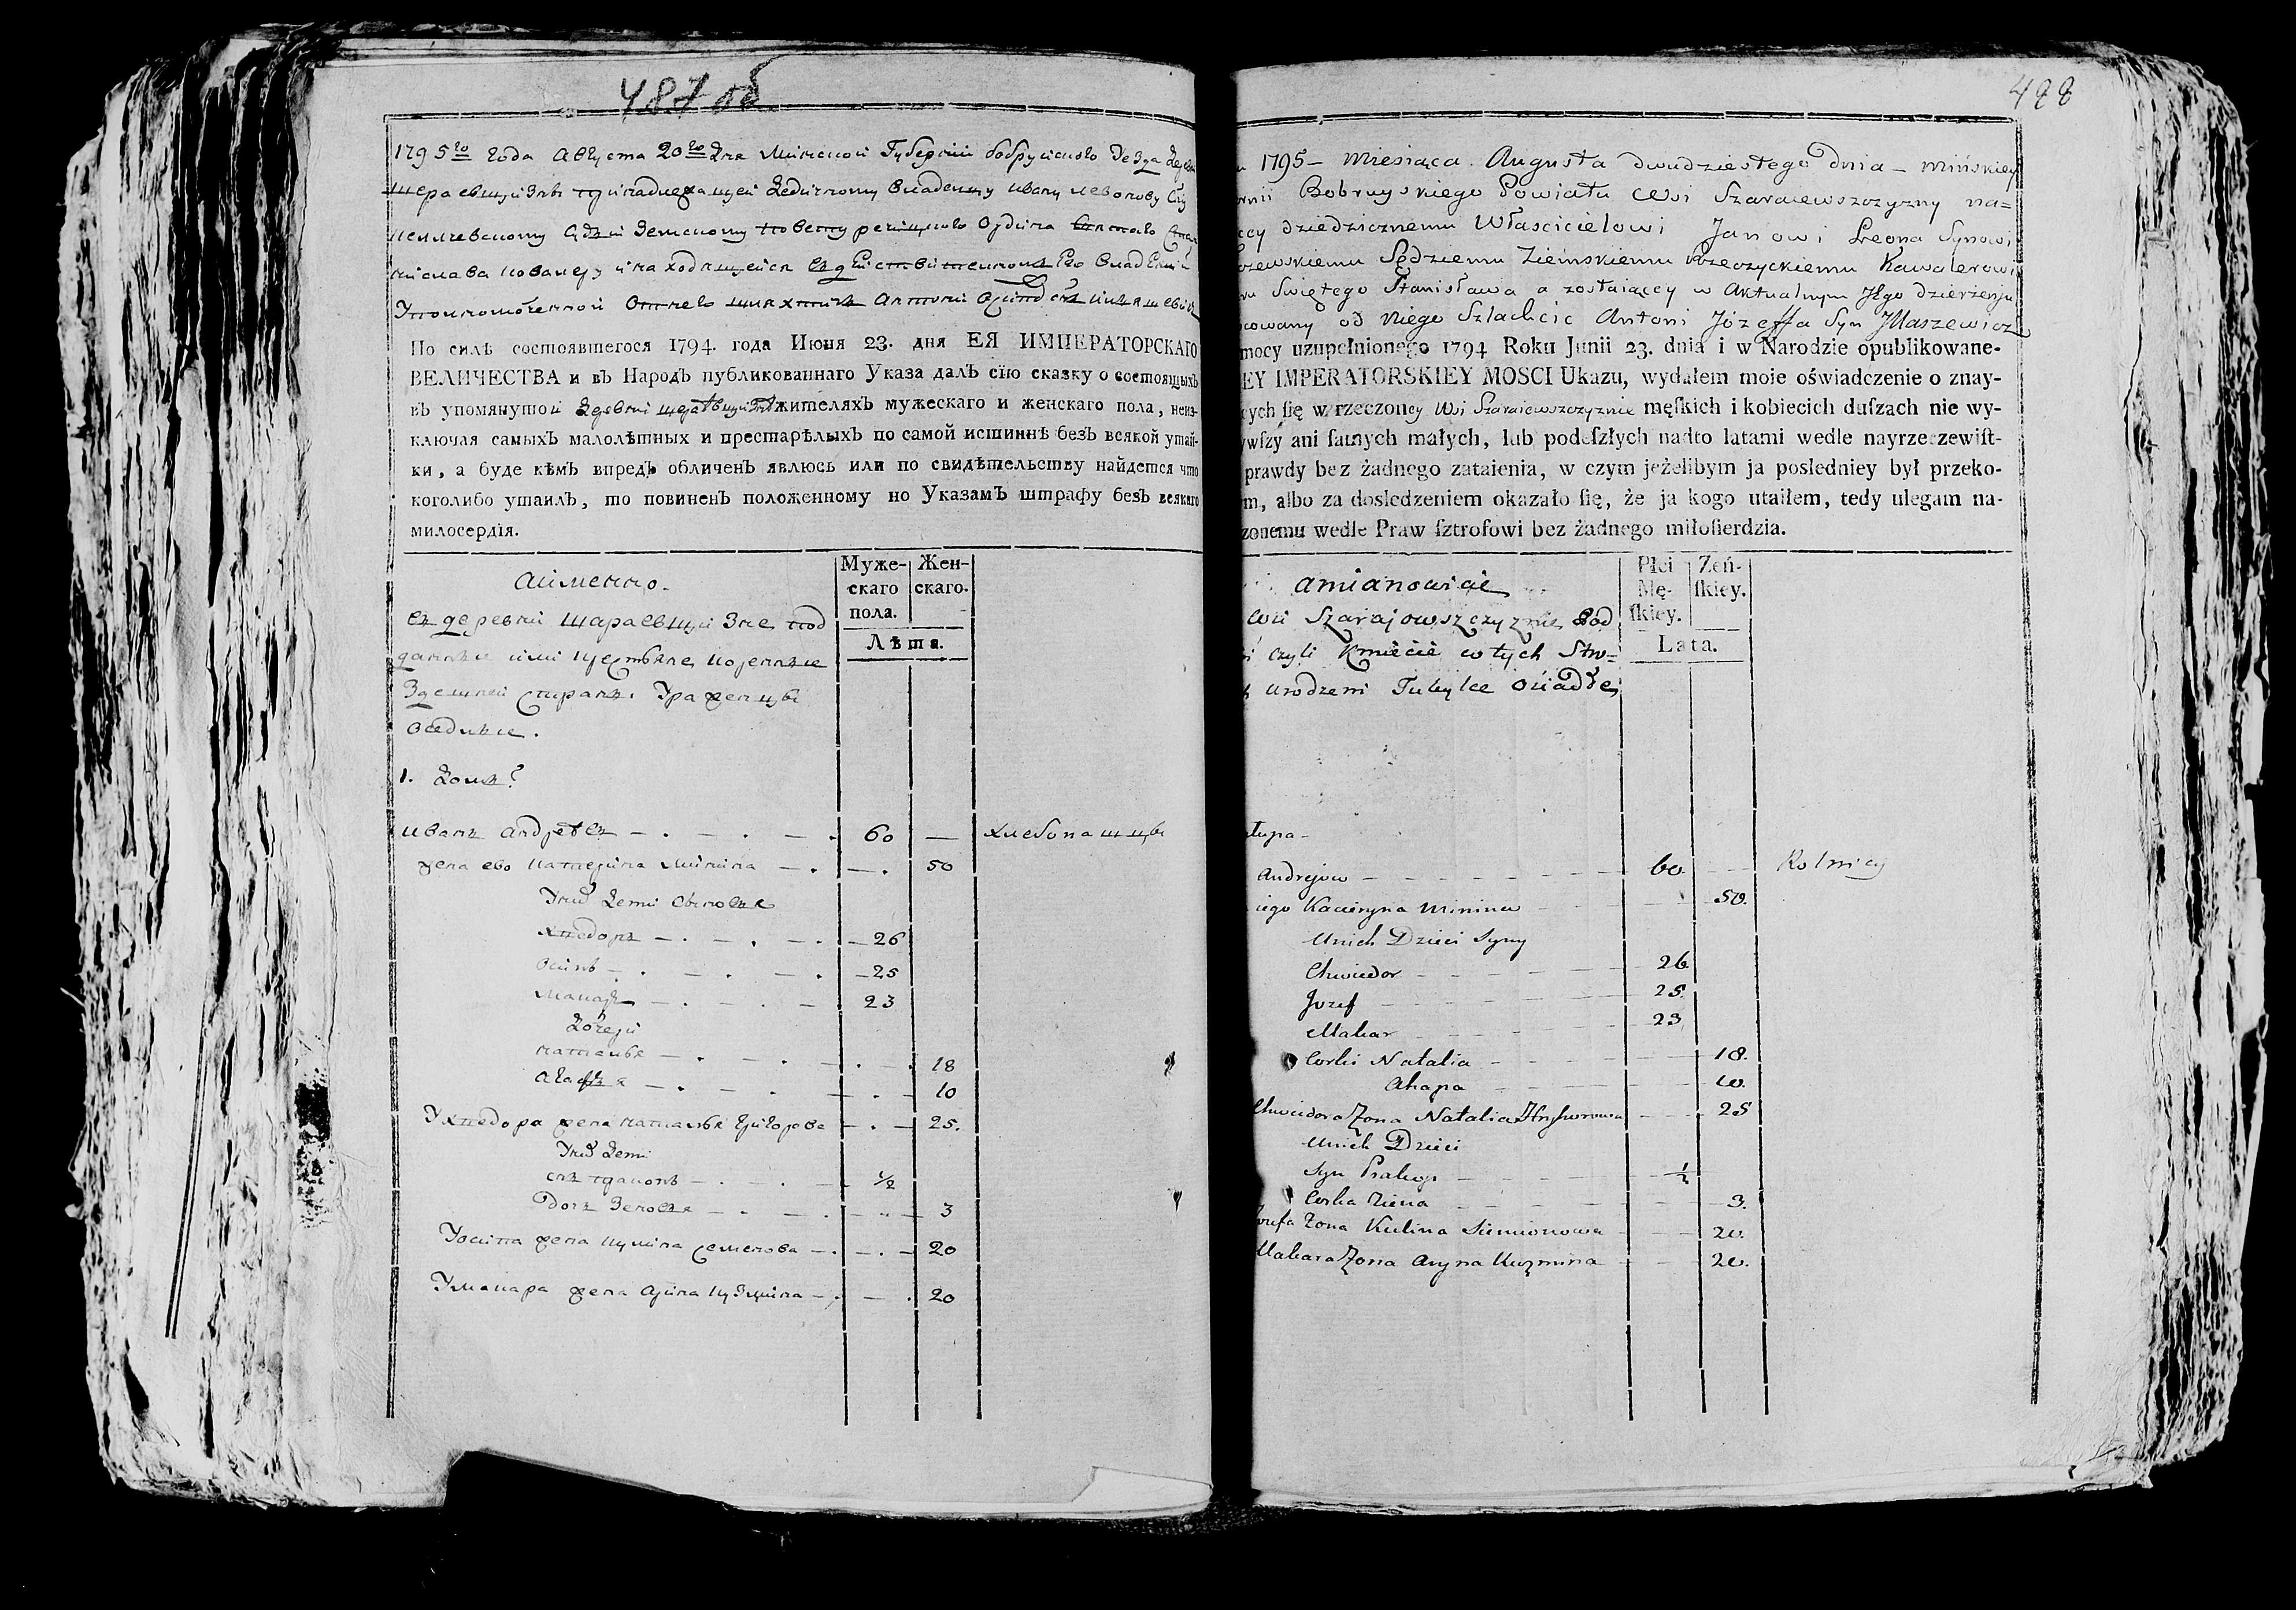 487 об
1795го года Августа 20го дня Минской Губернии бобруйского уезда
шараевщизнѣ принадлежащей дедичному владелцу ивану леонову
земскому речицкого Ордина святаго
кавалеру и находящейся въ действителномъ Его владении
Уполномоченной Отнего шляхтичъ Антоний
По силѣ состоявшегося 1794. года Июня 23. дня ЕЯ ИМПЕРАТОРСКАГО
ВЕЛИЧЕСТВА и въ Народѣ публикованнаго Указа далъ сїю сказку о состоящыхъ
въ упомянутой жителяхъ мужескаго и женскаго пола, неиз-
ключая самыхъ малолѣтныхъ и престарѣлыхъ по самой истиннѣ безъ всякой утай-
ки, а буде кѣмъ впредъ обличенъ явлюсь или по свидѣтельству найдется что
коголибо утаилъ, то повиненъ положенному но Указамъ штрафу безъ всякаго
милосердїя.
Аименно.
Муже-
скаго
пола.
Жен-
скаго.
Лѣта.
въ деревни шараевщизне под
данные или
здешней стараны Уроженцы
оседлые.
1. домъ
иванъ андреевъ 60 — хлебопашцы
жена ево катерина минина — 50
Уних дети сыновья
хведоръ 26
осипъ 25
макаръ 23
дочери
наталья 18
агафья 10
Ухведора жена наталья григорова 25.
Уних дети
снъ 1/2
дочь 3
Уосипа жена кулина семенова 20
Умакара жена арина кузмина 20
488
1795 – Miesiąca Augusta dwudziestego dnia – Mińskiey
Bobruyskiego Powiatu Wsi Szaraiewszczyzny na=
dziedzicznemu Właścicielowi Janowi Leona Synowi
Sędziemu Ziemskiemu Rzeczyckiemu Kawalerowi
Swiętego Stanisława a zostaiącey w Aktualnym Jego dzierżeniu
od Niego Szlachcic Antoni Józeffa Syn Jllaszewicz
mocy uzupełnionego 1794 Roku Junii 23. dnia i w Narodzie opublikowane-
EY IMPERATORSKIEY MOSCI Ukazu, wydałem moie oświadczenie o znay-
cych się w rzeczoney Wsi Szaraiewszczyznie męſkich i kobiecich duſzach nie wy-
wſzy ani ſamych małych, lub podeſzłych nadto latami wedle nayrzeczewiſt-
prawdy bez żadnego zataienia, w czym jeżelibym ja posledniey był przeko-
m, albo za dosledzeniem okazało ſię, że ja kogo utaiłem, tedy ulegam na-
zonemu wedle Praw ſztrofowi bez żadnego miłoſierdzia.
amianowicie
Płci
Mę-
ſkiey.
Żeń-
ſkiey.
Lata.
Wsi Szarajowszczyznie Pod
czyli Kmiecie w tych Stro=
urodzeni Tuteyſze
Andrejow 60. Rolnicy
iego Kacieryna Minina 50.
Unich Dzieci Syny
Chwiedor 26.
Jozef 25.
Makar 23.
Corki Natalia 18.
Ahapa 10.
Chwiedora Zona Natalia 25
Unich Dzieci
Syn Prakop 1/2
Corka 3.
Zona Kulina Siemionowa 20.
Makara Zona Aryna Kuzmina 20.